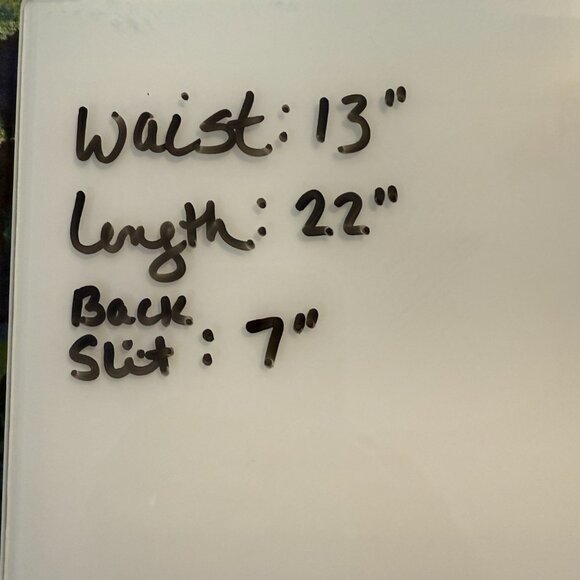 Waist: 13"
Length: 22"
Back
Slit: 7"